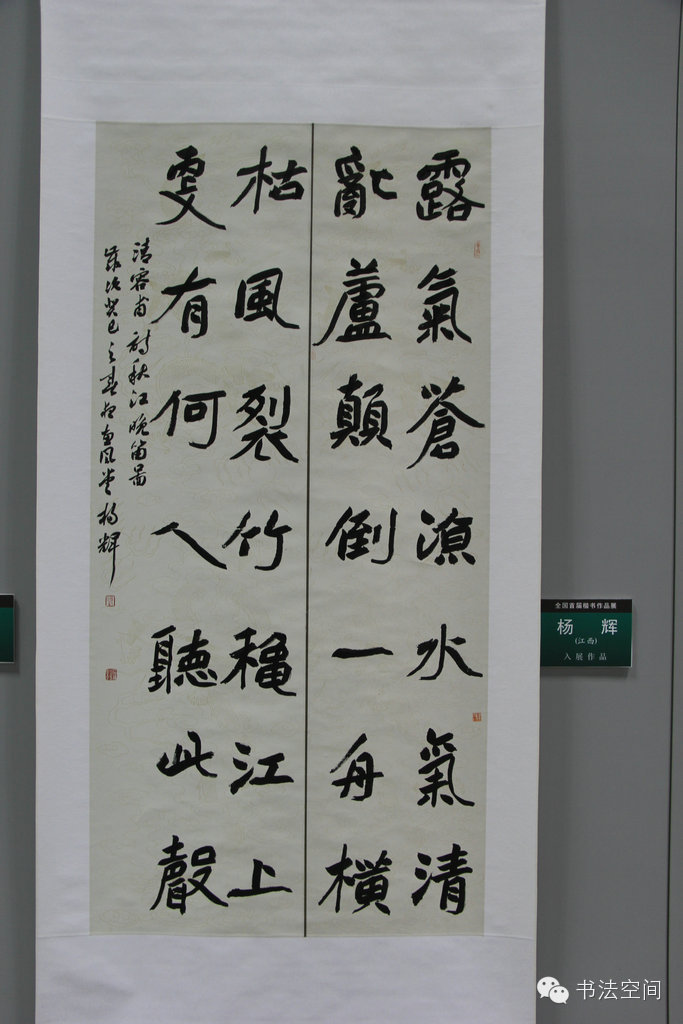 露氣蒼涼水氣清
亂蘆顛倒一舟橫
枯風裂竹穐江上
更有何人聽此聲
清容甫詩秋江晚笛圖
歲次癸巳之春於南風堂楊輝
全国首届楷书作品展
杨辉
(江西)
入展作品
书法空间